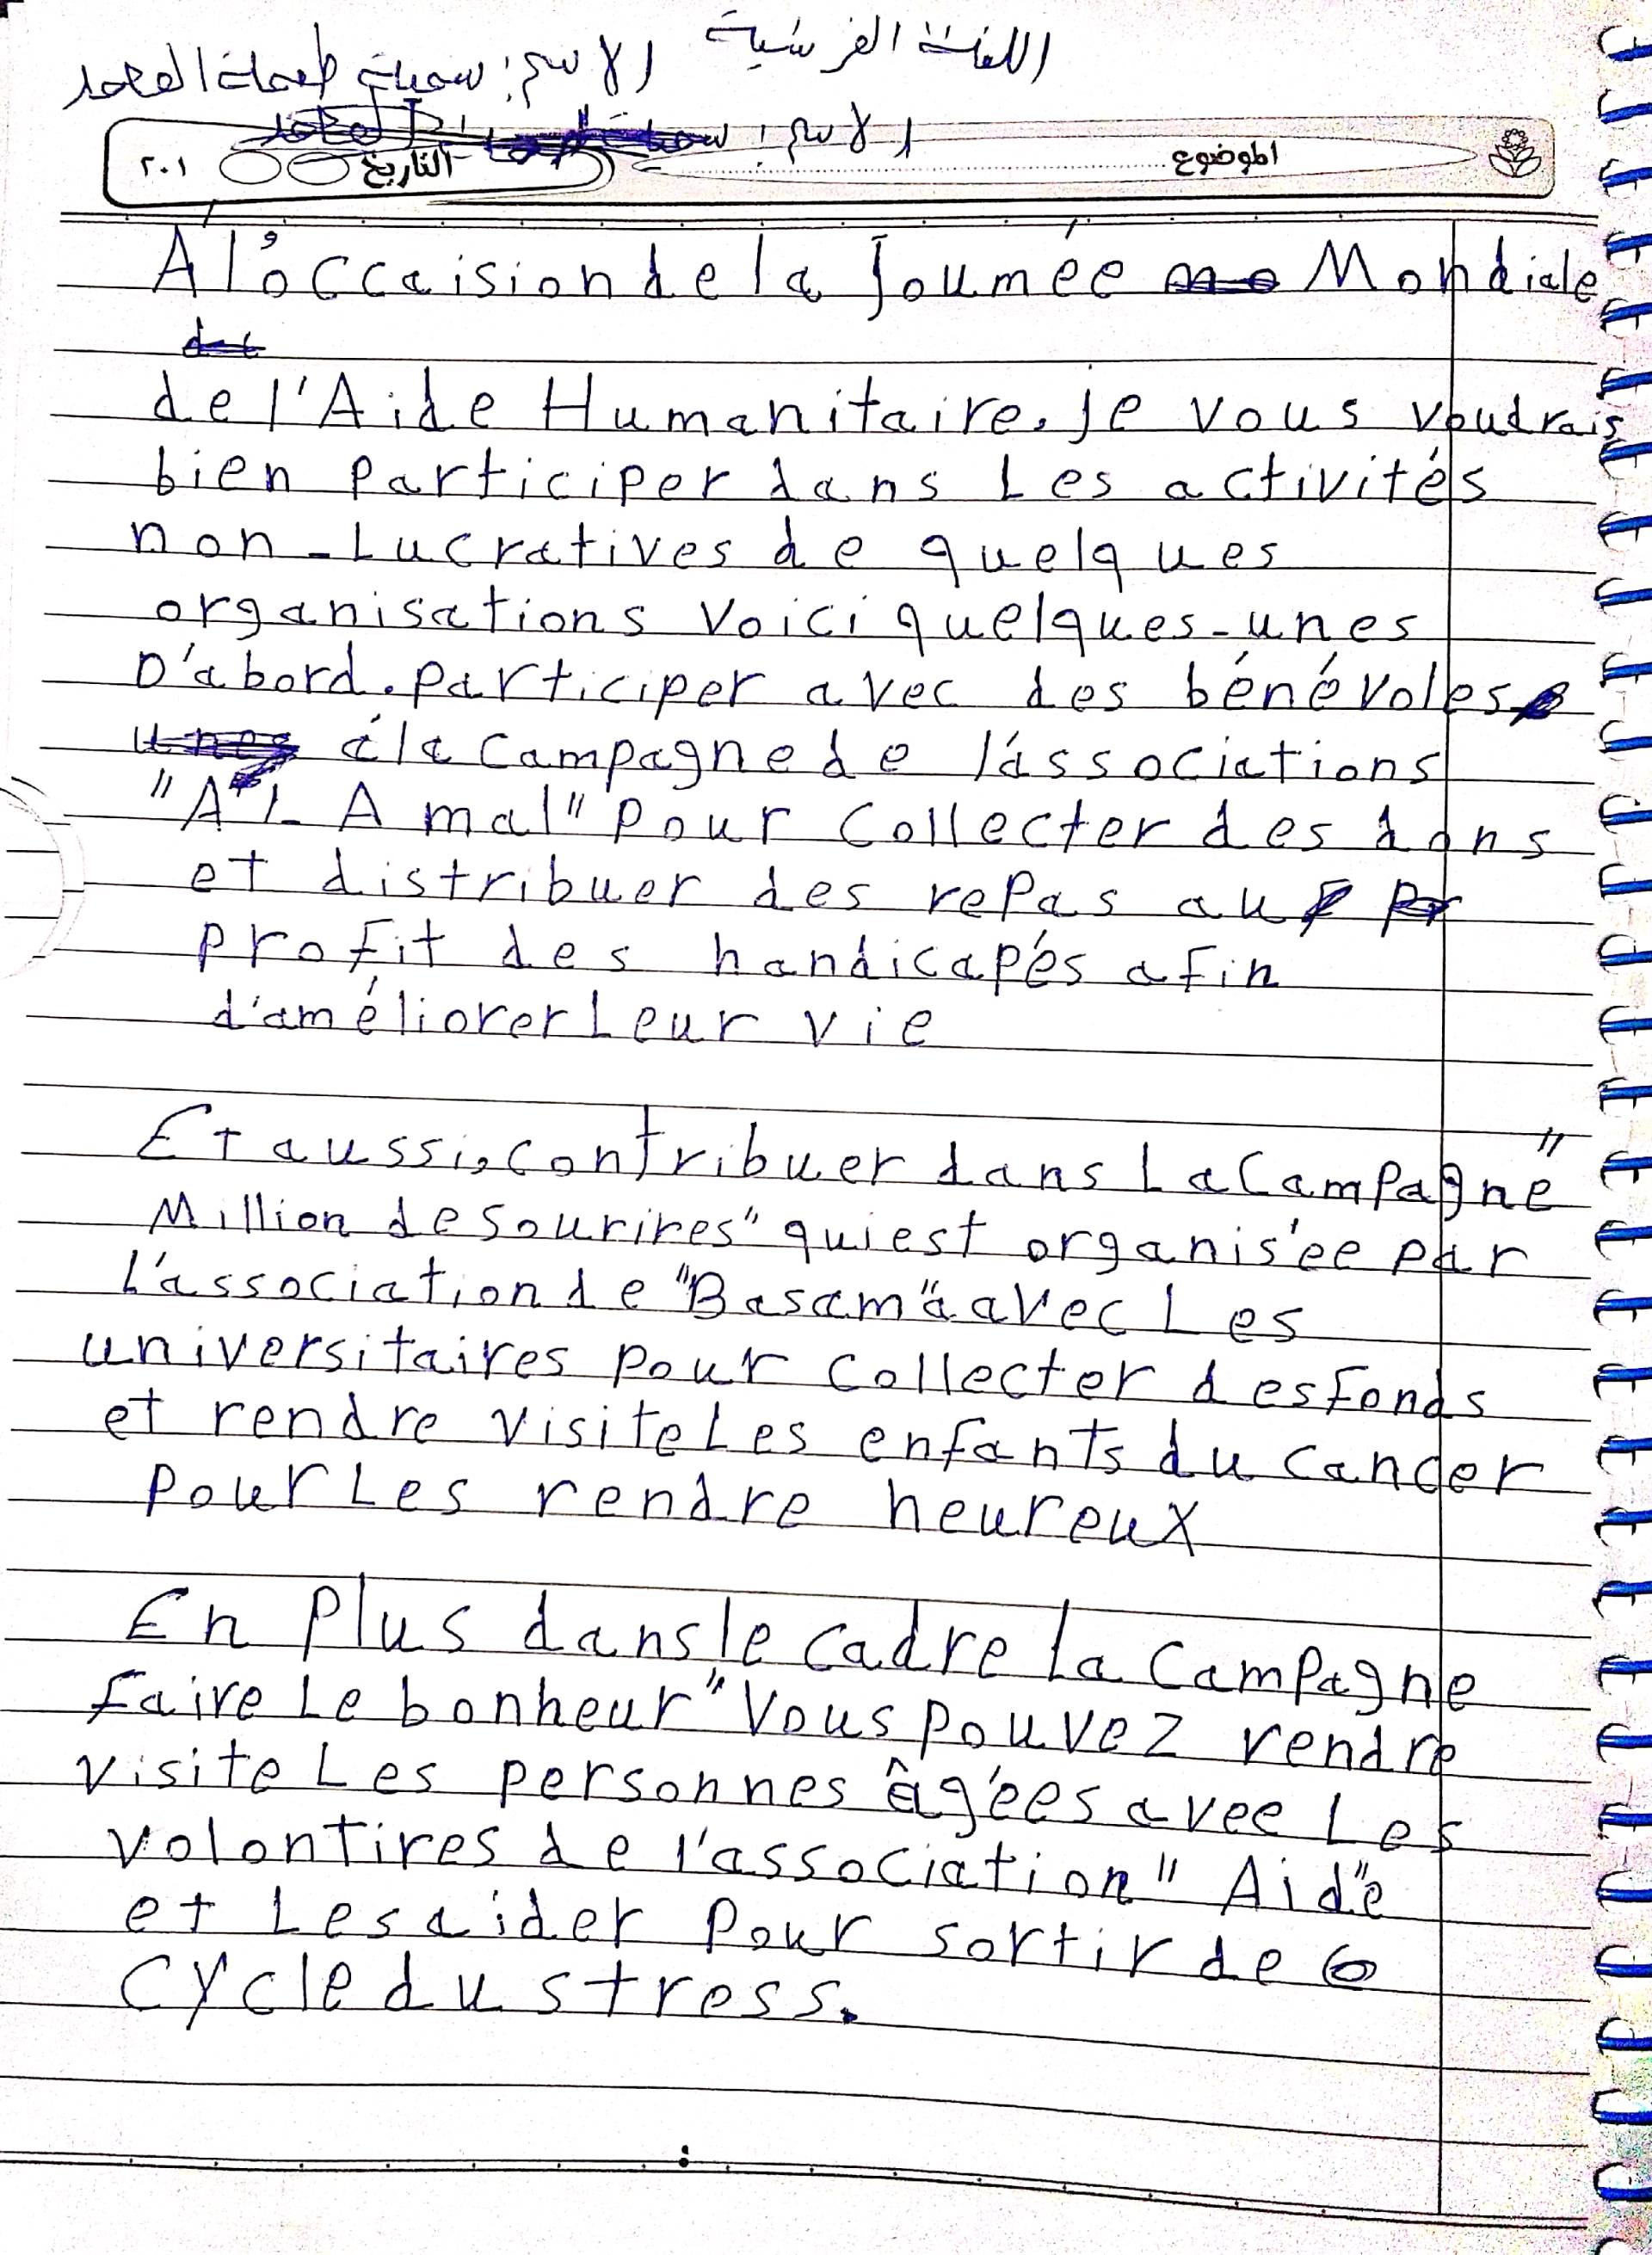 اللغة الفرنسية
الاسم: سمية طعمة المحمد
الاسم: 
الموضوع
التاريخ
٢٠١
A l'occaision de la Joumée Mondiale
de l'Aide Humanitaire. Je vous voudrais
bien participer dans Les activités
non-Lucratives de quelques
organisations Voici quelques-unes
D'abord. participer avec des bénévoles
á la campagne de l'associations
"AL Amal" pour collecter des dons
et distribuer des repas au
profit des handicapés afin
d'améliorer Leur vie
Et aussi, contribuer dans La Campagne "
Million de sourires" qui est organisée par
L'association de "Basama" avec Les
universitaires pour collecter des Fonds
et rendre visite Les enfants du cancer
pour Les rendre heureux
En Plus dans le cadre la campagne
Faire Le bonheur" Vous pouvez rendre
visite Les personnes âgées avee Les
volontires de l'association" Aide"
et Les aider pour sortir de
cycle du stress.